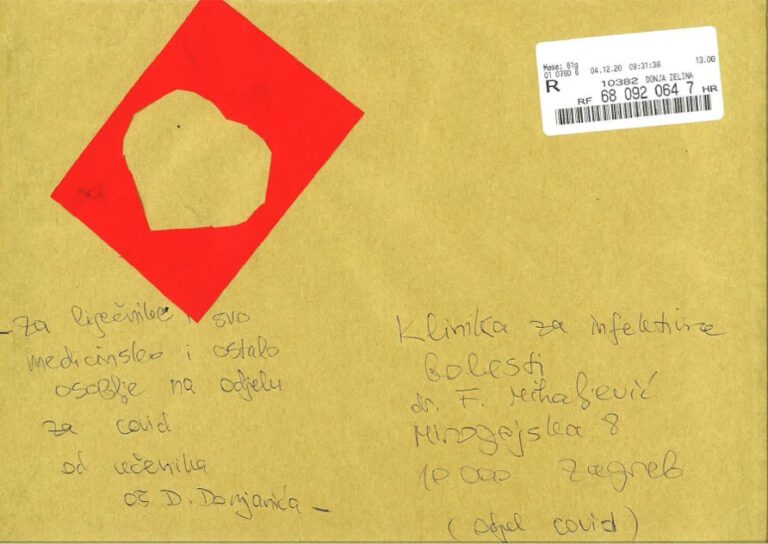 Masa: 61g
01 0780 6 04.12.20 09:31:36 13.00
R 10382 DONJA ZELINA
RF 68 092 064 7 HR
- Za liječnike i svo
medicinsko i ostalo
osoblje na odjelu
za covid
od učenika
OŠ D. Domjanića -
Klinika za infektivne
bolesti
dr. F. Mihaljević
Mirogojska 8
10 000 Zagreb
(odjel covid)